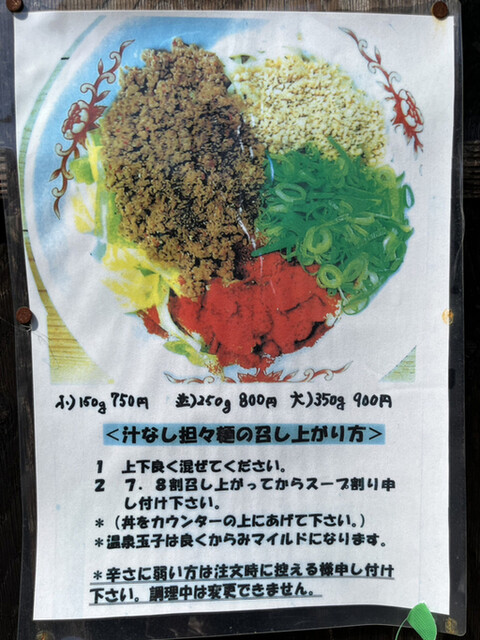 小)150g 750円　並)250g 800円　大)350g 900円
＜汁なし担々麺の召し上がり方＞
1　上下良く混ぜてください。
2　7．8割召し上がってからスープ割り申
し付け下さい。
＊（丼をカウンターの上にあげて下さい。）
＊温泉玉子は良くからみマイルドになります。
＊辛さに弱い方は注文時に控える様申し付け
下さい。調理中は変更できません。